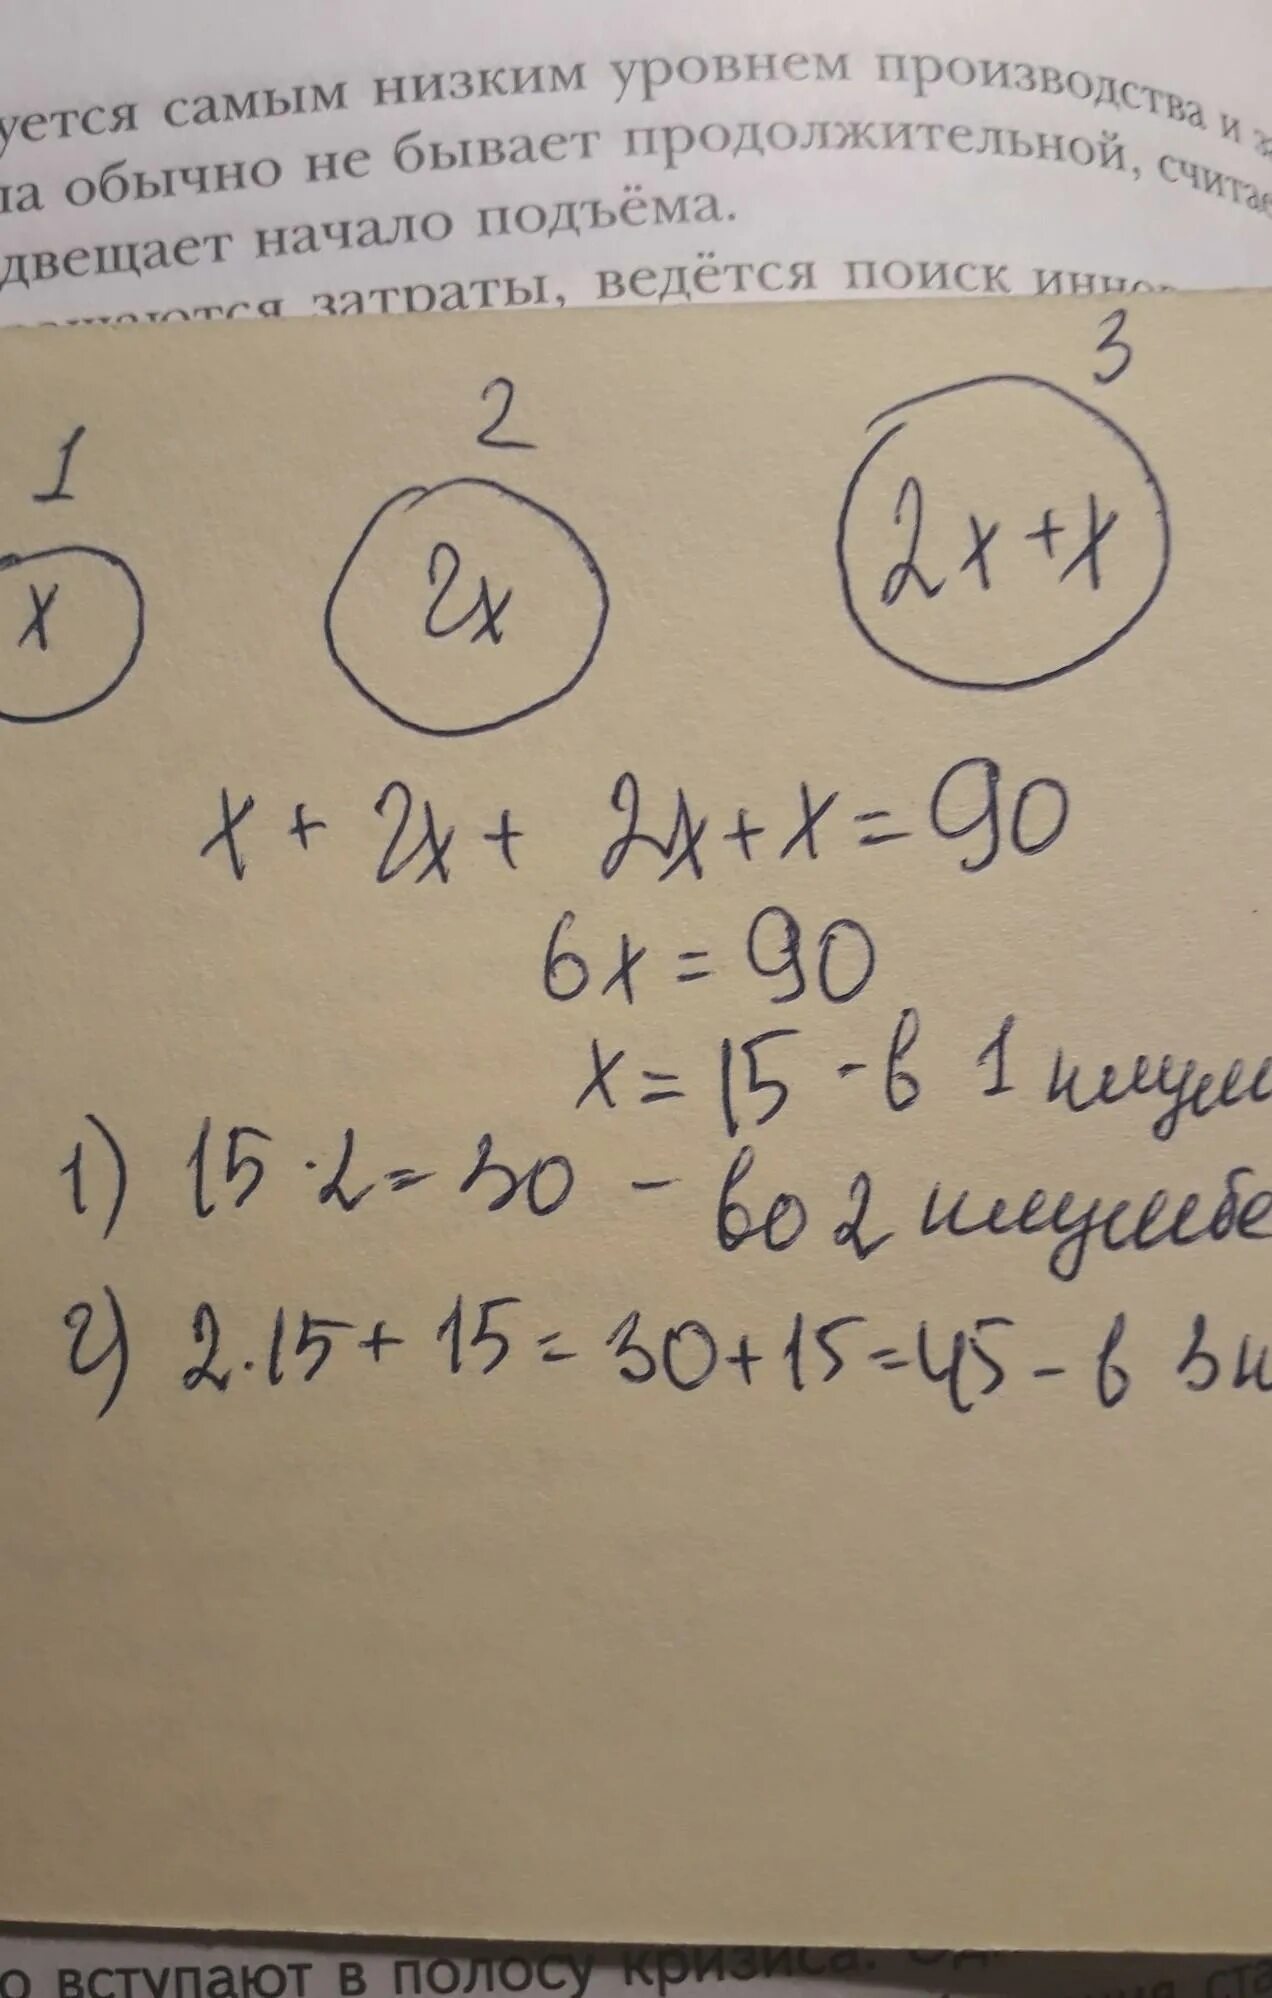 уется самым низким уровнем производства и
ла обычно не бывает продолжительной, считае
двещает начало подъёма.
затраты, ведётся поиск
1 2 3
x 2x 2x+x
x + 2x + 2x + x = 90
6x = 90
x = 15 - в 1 клум
1) 15 · 2 = 30 - во 2 клумбе
2) 2 · 15 + 15 = 30 + 15 = 45 - в 3 к
о вступают в полосу кризиса.